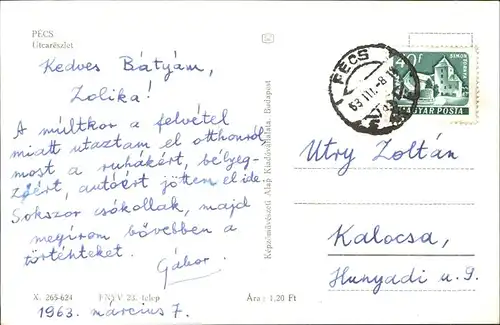 PÉCS
Utcarészlet
Kedves Bátyám,
Zolika!
A múltkor a felvétel
miatt utaztam el otthonról,
most a ruhákért, bélyeg-
zőért, autóért jöttem el ide.
Sokszor csókollak, majd
megírom bővebben a
történteket.
Gábor
X. 265-624 FNYV 23. telep Ára: 1,20 Ft
1963. március 7.
Képzőművészeti Alap Kiadóvállalata, Budapest
PÉCS
63 III.-8.
40 f
MAGYAR POSTA
Utry Zoltán
Kalocsa,
Hunyadi u. 9.